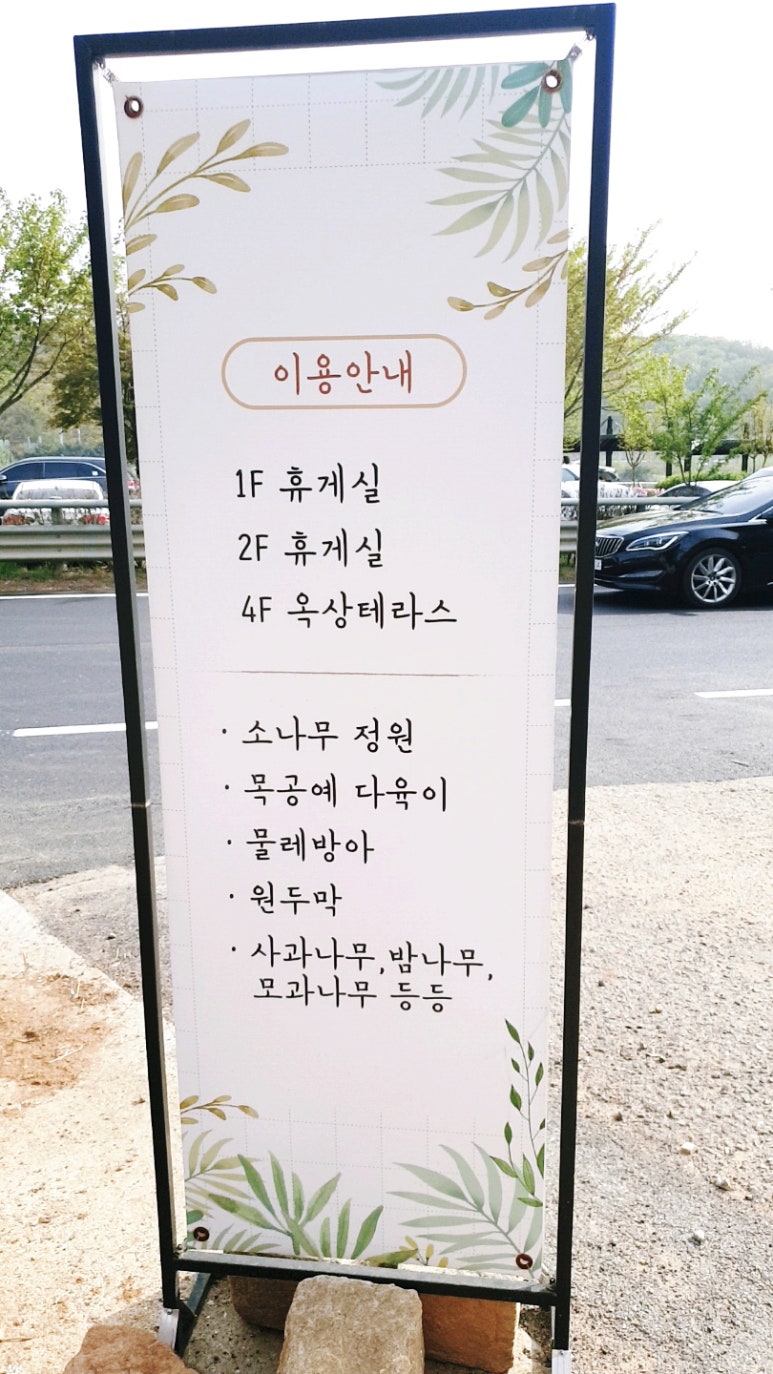 이용안내
1F 휴게실
2F 휴게실
4F 옥상테라스
· 소나무 정원
· 목공예 다육이
· 물레방아
· 원두막
· 사과나무,밤나무,
모과나무 등등